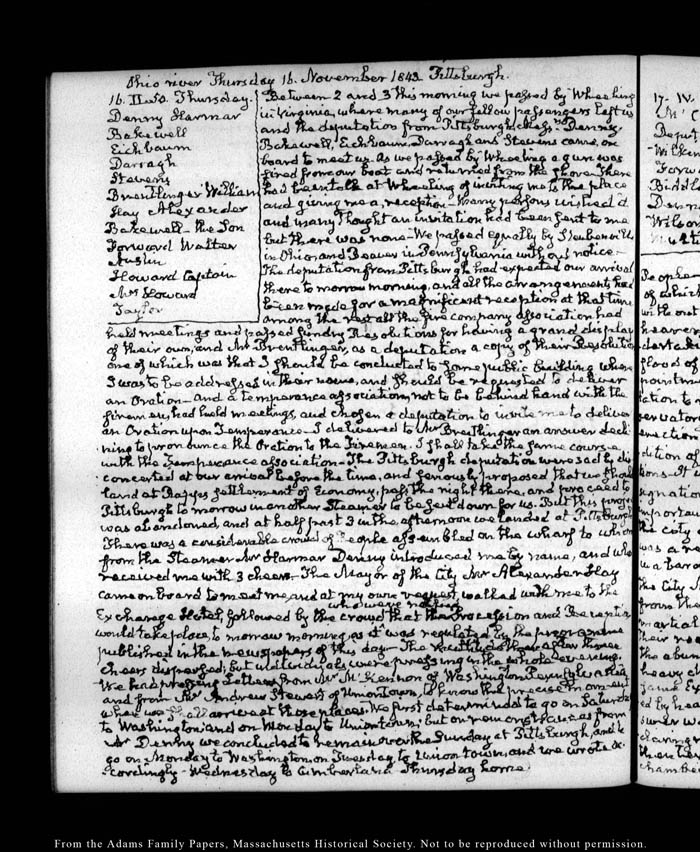 Ohio river Thursday 16. November 1843. Pittsburgh.
16. II. Thursday.
Denny Harmar
Bakewell
Eichbaum
Darragh
Stevens
Brentlinger William
Hay Alexander
Bakewell - the Son
Forward Walter
Austin
Howard Captain
Mrs Howard
Taylor
Between 2 and 3 this morning we passed by Wheeling
in Virginia, where many of our fellow passengers left us
and the deputation from Pittsburgh, Messrs Denny,
Bakewell, Eichbaum, Darragh and Stevens came on
board to meet us. As we passed by Wheeling a gun was
fired from our boat and returned from the shore. There
had been talk at Wheeling of inviting me to that place
and giving me a reception. Many persons wished it
and many thought an invitation had been sent to me
but there was none. We passed equally by Steubenville
in Ohio, and Beaver in Pennsylvania without notice.
The deputation from Pittsburgh had expected our arrival
there to morrow morning, and all the arrangements had
been made for a magnificent reception at that time
among the rest all the fire company association had
held meetings and passed sundry Resolutions for having a grand display
of their own, and Mr Brentlinger, as a deputation a copy of their Resolutions
one of which was that I should be conducted to some public building where
I was to be addressed in their name, and should be requested to deliver
an Oration - and a temperance association, not to be behind hand with the
firemen, had held meetings, and chosen a deputation to invite me to deliver
an Oration upon Temperance - I delivered to Mr Brentlinger an answer decli
ning to pronounce the Oration to the Firemen. I shall take the same course
with the Temperance association - The Pittsburgh deputation were sadly dis
concerted at our arrival before the time, and seriously proposed that we should
land at Rapp's settlement of Economy, pass the night there, and proceed to
Pittsburgh to morrow in another Steamer to be sent down for us. But this project
was abandoned, and at half past 3 in the afternoon we landed at Pittsburgh
There was a considerable crowd of People assembled on the wharf to whom
from the Steamer Mr Harmar Denny introduced me by name, and who
received me with 3 cheers. The Mayor of the City Mr Alexander Hay
came on board to meet me, and at my own request, walked with me to the
Exchange Hotel, followed by the crowd
who were notified
that the procession and Reception
would take place, to morrow morning as it was regulated by the programme
published in the newspapers of this day - The multitude then after three
cheers dispersed; but individuals were pressing in the whole evening.
We had pressing Letters from Mr McKennon of Washington Pennsylvania
and from Mr Andrew Stewart of Uniontown, to know the precise moment
when we shall arrive at those places. We first determined to go on Saturday
to Washington, and on Monday to Uniontown; but on remonstrances from
Mr Denny we concluded to remain over the Sunday at Pittsburgh, and to
go on Monday to Washington on Tuesday to Uniontown, and we wrote ac
cordingly - Wednesday to Cumberland Thursday home
17. IV.
From the Adams Family Papers, Massachusetts Historical Society. Not to be reproduced without permission.